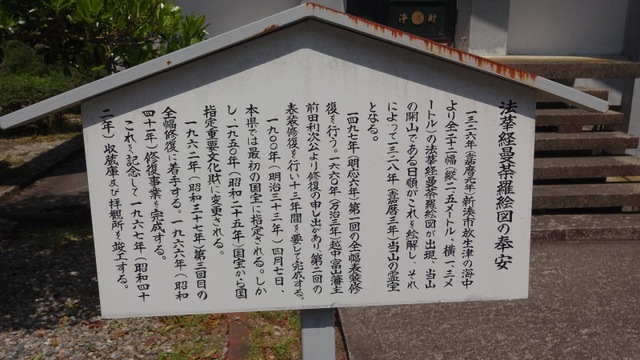 浄財
法華経曼荼羅絵図の奉安
一三二六年(嘉暦元年)新湊市放生津の海中
より全二十二幅(縦二・五メートル、横一・三メ
ートル)の法華経曼荼羅絵図が出現、当山
の開山である日順がこれを絵解し、それ
によって一三二八年(嘉暦三年)当山の霊宝
となる。
一四九七年(明応六年)第一回の全幅表装修
復を行う。一六六〇年(万治三年)越中富山藩主
前田利次公より修復の申し出があり第二回の
表装修復を行い十三年間を要して完成する。
一九〇〇年(明治三十三年)四月七日、
本県では最初の国宝に指定される。しか
し、一九五〇年(昭和二十五年)国宝から国
指定重要文化財に変更される。
一九六二年(昭和三十七年)第三回目の
全幅修復に着手する。一九六六年(昭和
四十一年)修復事業を完成する。
これを記念して一九六七年(昭和四十
二年)収蔵庫及び拝観所を竣工する。